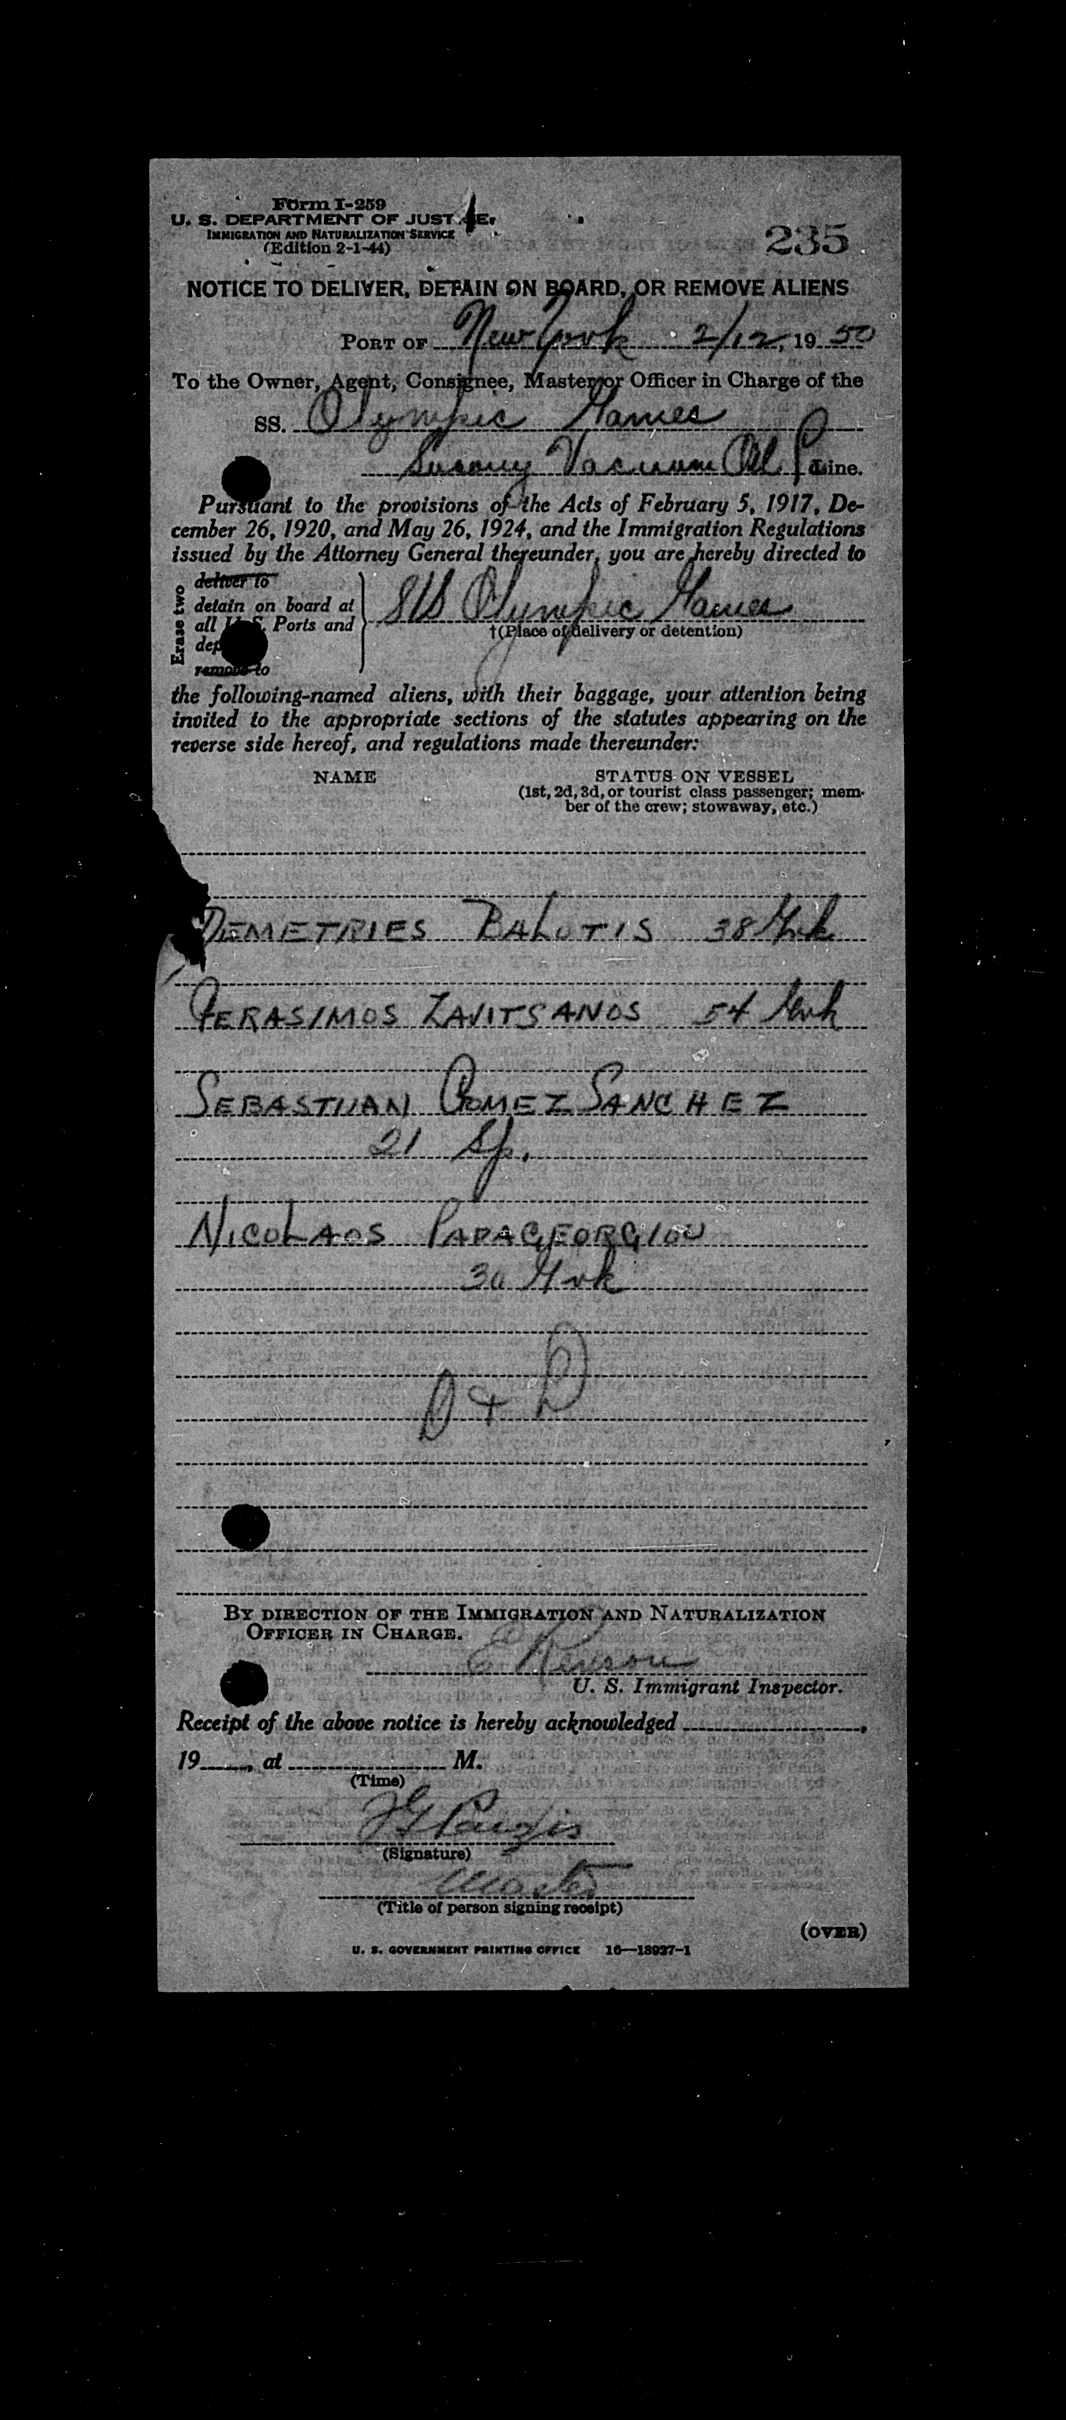 Form I-259
U. S. DEPARTMENT OF JUSTICE
IMMIGRATION AND NATURALIZATION SERVICE
(Edition 2-1-44)
235
NOTICE TO DELIVER, DETAIN ON BOARD, OR REMOVE ALIENS
PORT OF New York 2/12, 19 50
To the Owner, Agent, Consignee, Master, or Officer in Charge of the
SS. Olympic Games
Socony Vacuum Oil Co Line.
Pursuant to the provisions of the Acts of February 5, 1917, De-
cember 26, 1920, and May 26, 1924, and the Immigration Regulations
issued by the Attorney General thereunder, you are hereby directed to
Erase two
deliver to
detain on board at
all U. S. Ports and
dep
remove to
S/S Olympic Games
†(Place of delivery or detention)
the following-named aliens, with their baggage, your attention being
invited to the appropriate sections of the statutes appearing on the
reverse side hereof, and regulations made thereunder:
NAME STATUS ON VESSEL
(1st, 2d, 3d, or tourist class passenger; mem-
ber of the crew; stowaway, etc.)
DEMETRIES BALOTIS 38 Grk
GERASIMOS ZAVITSANOS 54 Grk
SEBASTIJAN GOMEZ SANCHEZ
21 Sp.
NICOLAOS PAPAGEORGIOU
30 Grk
D + D
BY DIRECTION OF THE IMMIGRATION AND NATURALIZATION
OFFICER IN CHARGE.
U. S. Immigrant Inspector.
Receipt of the above notice is hereby acknowledged
19 , at M.
(Time)
(Signature)
Master
(Title of person signing receipt)
(OVER)
U. S. GOVERNMENT PRINTING OFFICE 16—13927-1